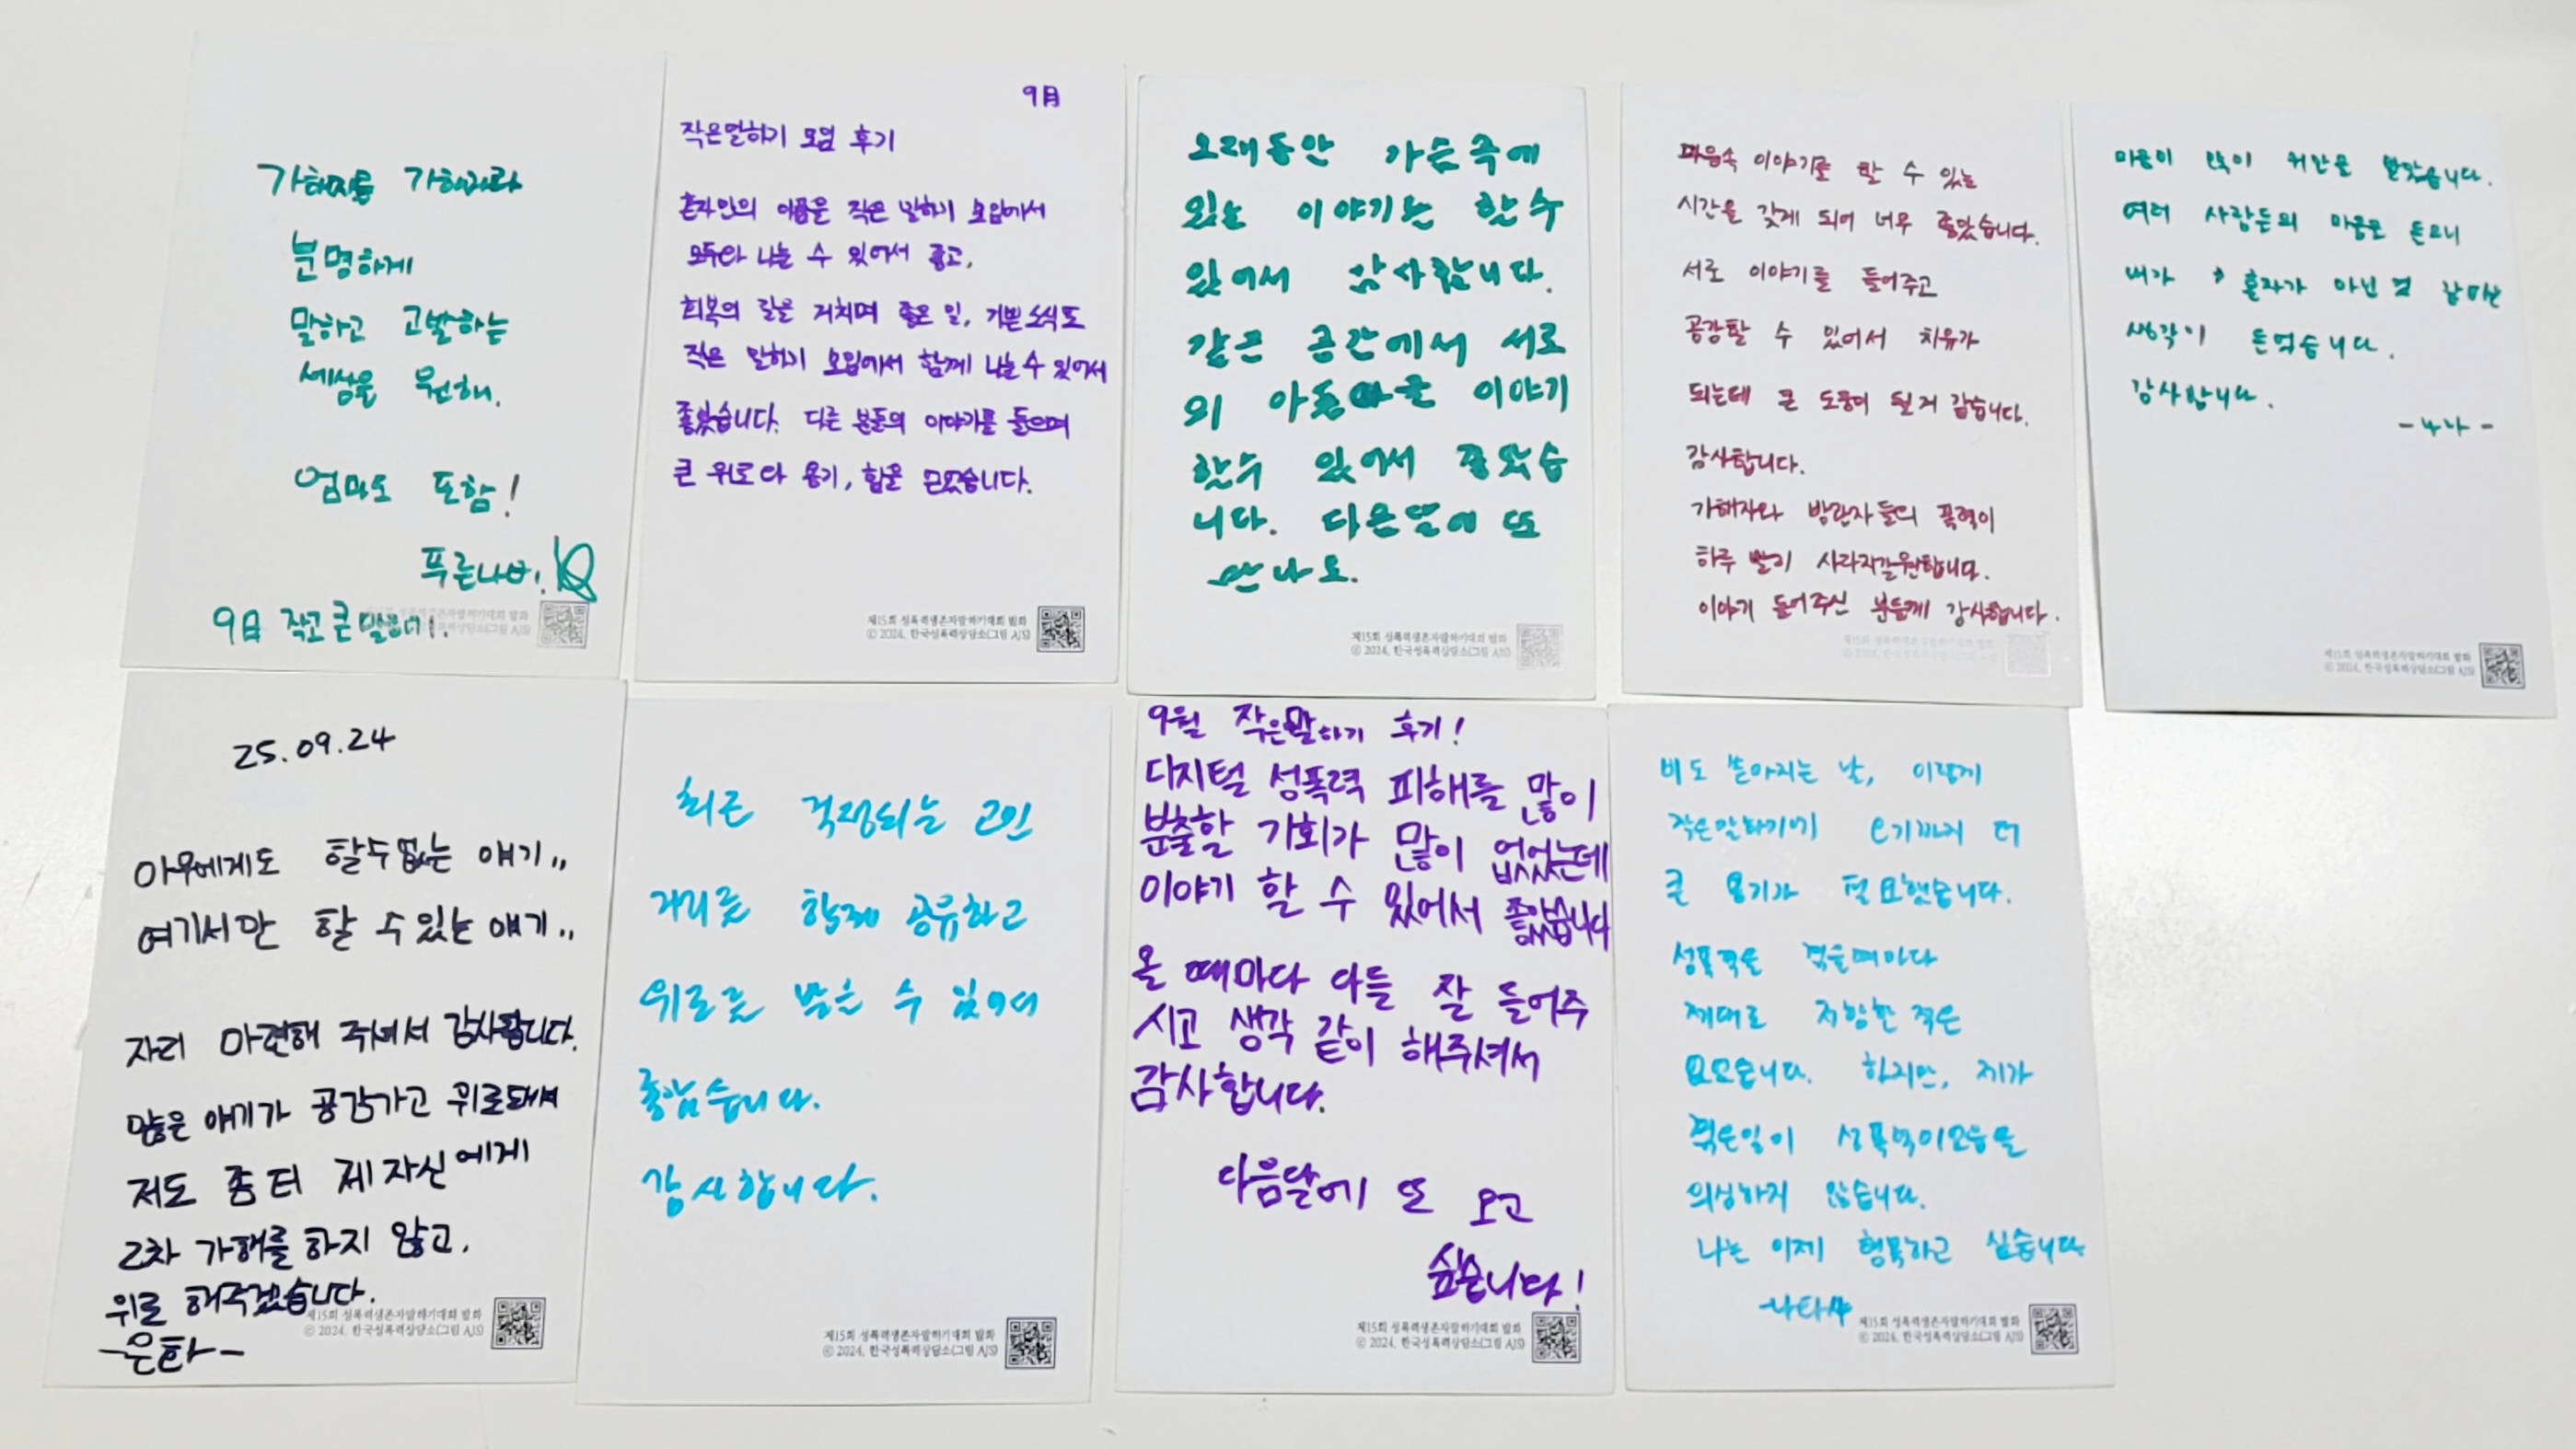 가해자를 가해자라
분명하게
말하고 고발하는
세상을 원해.
엄마도 포함!
푸른나비.
9月 작고 큰 말하기.
제15회 성폭력생존자말하기대회 발화
ⓒ 2024. 한국성폭력상담소(그림 AJS)
9月
작은말하기 모임 후기
혼자만의 아픔을 작은 말하기 모임에서
모두와 나눌 수 있어서 좋고,
회복의 길을 거치며 좋은 일, 기쁜 소식도
작은 말하기 모임에서 함께 나눌 수 있어서
좋았습니다. 다른 분들의 이야기를 들으며
큰 위로와 용기, 힘을 얻었습니다.
제15회 성폭력생존자말하기대회 발화
ⓒ 2024. 한국성폭력상담소(그림 AJS)
오래동안 가슴속에
있는 이야기는 할수
있어서 감사합니다.
같은 공간에서 서로
의 아픔을 이야기
할수 있어서 좋았습
니다. 다음달에 또
만나요.
제15회 성폭력생존자말하기대회 발화
ⓒ 2024. 한국성폭력상담소(그림 AJS)
마음속 이야기를 할 수 있는
시간을 갖게 되어 너무 좋았습니다.
서로 이야기를 들어주고
공감할 수 있어서 치유가
되는데 큰 도움이 될거 같습니다.
감사합니다.
가해자와 방관자들의 폭력이
하루 빨리 사라지길원합니다.
이야기 들어주신 분들께 감사합니다.
제15회 성폭력생존자말하기대회 발화
ⓒ 2024. 한국성폭력상담소(그림 AJS)
마음이 많이 위안을 받았습니다.
여러 사람들의 마음을 들으니
내가 혼자가 아닌 것 같다는
생각이 들었습니다.
감사합니다.
-누나-
제15회 성폭력생존자말하기대회 발화
ⓒ 2024. 한국성폭력상담소(그림 AJS)
25.09.24
아무에게도 할수없는 얘기..
여기서만 할 수 있는 얘기..
자리 마련해 주셔서 감사합니다.
많은 얘기가 공감가고 위로돼서
저도 좀 더 제 자신에게
2차 가해를 하지 않고,
위로 해주겠습니다.
-은하-
제15회 성폭력생존자말하기대회 발화
ⓒ 2024. 한국성폭력상담소(그림 AJS)
최근 걱정되는 고민
거리를 함께 공유하고
위로를 받을 수 있어서
좋았습니다.
감사합니다.
제15회 성폭력생존자말하기대회 발화
ⓒ 2024. 한국성폭력상담소(그림 AJS)
9월 작은말하기 후기!
디지털 성폭력 피해를 많이
분출할 기회가 많이 없었는데
이야기 할 수 있어서 좋았습니다
올 때마다 다들 잘 들어주
시고 생각 같이 해주셔서
감사합니다.
다음달에 또 오고
싶습니다!
제15회 성폭력생존자말하기대회 발화
ⓒ 2024. 한국성폭력상담소(그림 AJS)
비도 쏟아지는 날, 이렇게
작은말하기에 오기까지 더
큰 용기가 필요했습니다.
성폭력을 겪을때마다
제대로 저항한 적은
없었습니다. 하지만, 제가
겪은일이 성폭력이었음을
의심하지 않습니다.
나는 이제 행복하고 싶습니다
-나타샤
제15회 성폭력생존자말하기대회 발화
ⓒ 2024. 한국성폭력상담소(그림 AJS)